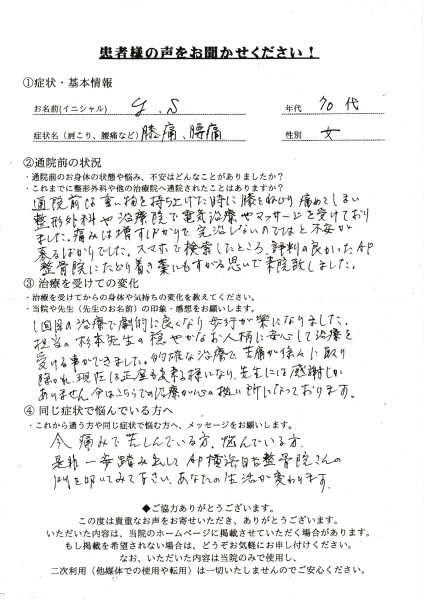 患者様の声をお聞かせください！
①症状・基本情報
お名前(イニシャル) y.S 年代 70代
症状名（肩こり、腰痛など）膝痛、腰痛 性別 女
②通院前の状況
・通院前のお身体の状態や悩み、不安はどんなことがありましたか？
・これまでに整形外科や他の治療院へ通院されたことはありますか？
通院前は重い物を持ち上げた時に膝をねじり痛めてしまい
整形外科や治療院で電気治療やマッサージを受けており
ました。痛みは増すばかりで、完治しないのではと不安が
募るばかりでした。スマホで検索したところ、評判の良かったAP
整骨院にたどり着き藁にもすがる思いで来院致しました。
③ 治療を受けての変化
・治療を受けてからの身体や気持ちの変化を教えてください。
・当院や先生（先生のお名前）の印象・感想をお願いします。
1回目の治療で劇的に良くなり歩行が楽になりました。
担当の杉本先生の穏やかなお人柄に安心して治療を
受ける事ができました。的確な治療で、苦痛が徐々に取り
除かれ、現在は正座も出来る様になり、先生には感謝しか
ありません。今はこちらでの治療が心の拠り所になっております。
④ 同じ症状で悩んでいる方へ
・これから通う方や同じ症状で悩む方へ、メッセージをお願いします。
今、痛みで苦しんでいる方、悩んでいる方、
是非一歩踏み出して AP横浜日吉整骨院さんの
門を叩いてみて下さい。あなたの生活が変わります。
◆ご協力ありがとうございます。
この度は貴重なお声をお寄せいただき、ありがとうございます。
いただいた内容は、当院のホームページに掲載させていただく場合があります。
もし掲載を希望されない場合は、どうぞお気軽にお申し付けください。
なお、いただいた内容は当院のみで使用し、
二次利用（他媒体での使用や転用）は一切いたしませんのでご安心ください。